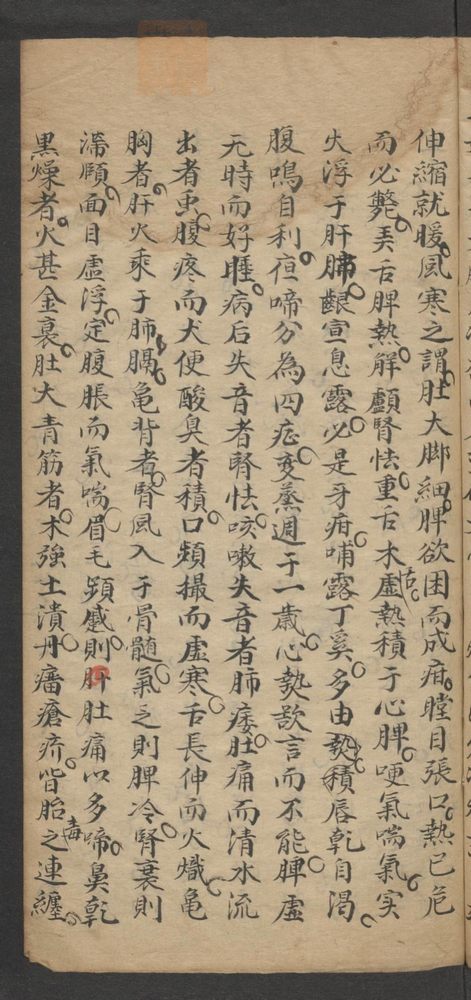 伸縮就暖風寒之謂肚大脚細脾欲困而成疳瞠目張口熱已危
而必斃弄舌脾熱解顱腎怯重舌木舌虛熱積于心脾哽氣喘氣实
火浮于肝肺齦宣息露必是牙疳哺露丁奚多由熱積唇乾自渴
腹鳴自利夜啼分為四症变蒸週于一歲心熱欲言而不能脾虛
无時而好睡病后失音者腎怯咳嗽失音者肺痿肚痛而清水流
出者虫腹疼而大便酸臭者積口頻撮而虛寒舌長伸而火熾亀
胸者肝火乘于肺膈亀背者腎風入于骨髓氣乏則脾冷腎衰則
滯頤面目虛浮定腹脹而氣喘眉毛頻蹙則肝肚痛以多啼鼻乾
黑燥者火甚金衰肚大青筋者木強土潰丹𤺥瘡疥皆胎毒之連纏